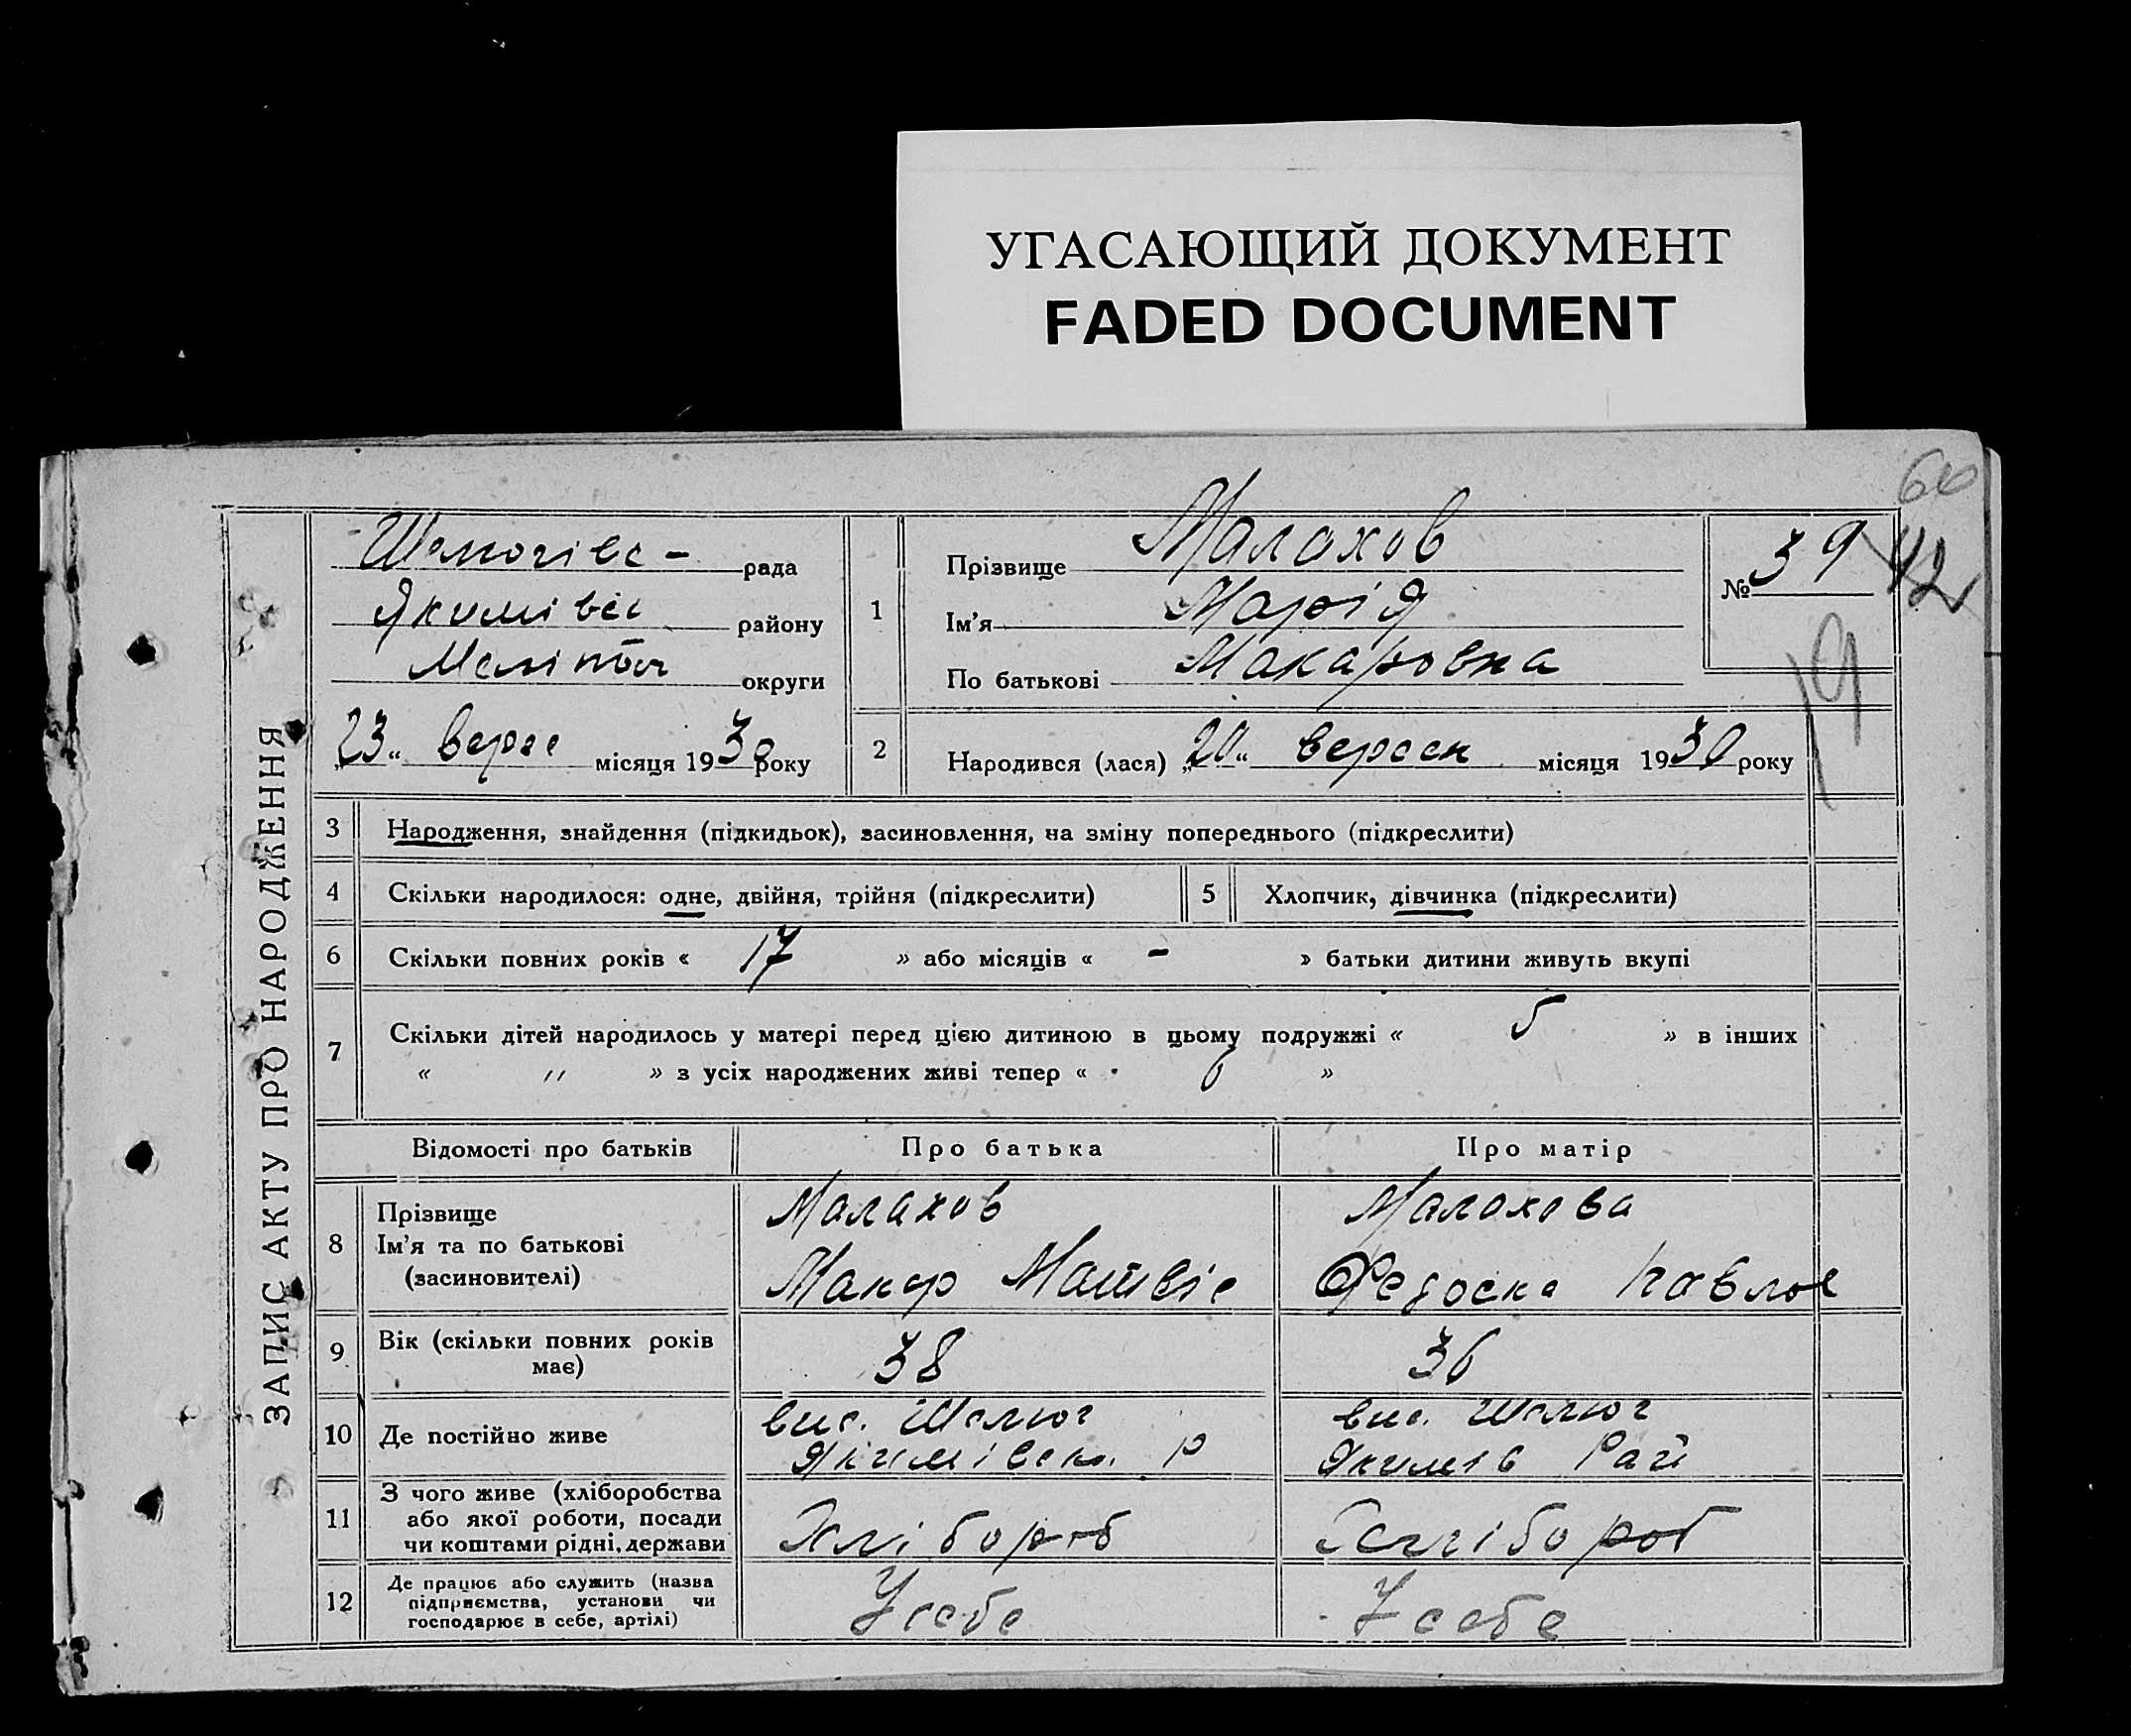 УГАСАЮЩИЙ ДОКУМЕНТ
FADED DOCUMENT
60
ЗАПИС АКТУ ПРО НАРОДЖЕННЯ
рада
Якимівс району
Меліт округи
„23“ верес місяця 1930 року
1
Прізвище Малахов
Ім’я Марія
По батькові Макаровна
№ 39
42
19
2
Народився (лася) „20“ вересн місяця 1930 року
3 Народження, знайдення (підкидьок), засиновлення, на зміну попереднього (підкреслити)
4 Скільки народилося: одне, двійня, трійня (підкреслити)
5 Хлопчик, дівчинка (підкреслити)
6 Скільки повних років « 17 » або місяців « - » батьки дитини живуть вкупі
7 Скільки дітей народилось у матері перед цією дитиною в цьому подружжі « 5 » в інших
« „ » з усіх народжених живі тепер « 6 »
Відомості про батьків
Про батька
Про матір
8
Прізвище
Ім’я та по батькові
(засиновителі)
Малахов
Макар Матвіє
Малахова
Федоска Павлов
9
Вік (скільки повних років
має)
38
36
10 Де постійно живе
вис. Шелюг
Якимівськ. р
вис. Шелюг
Якимів Рай
11
З чого живе (хліборобства
або якої роботи, посади
чи коштами рідні, держави
Хлібороб
Хлібороб
12
Де працює або служить (назва
підприємства, установи чи
господарює в себе, артілі)
У себе
У себе